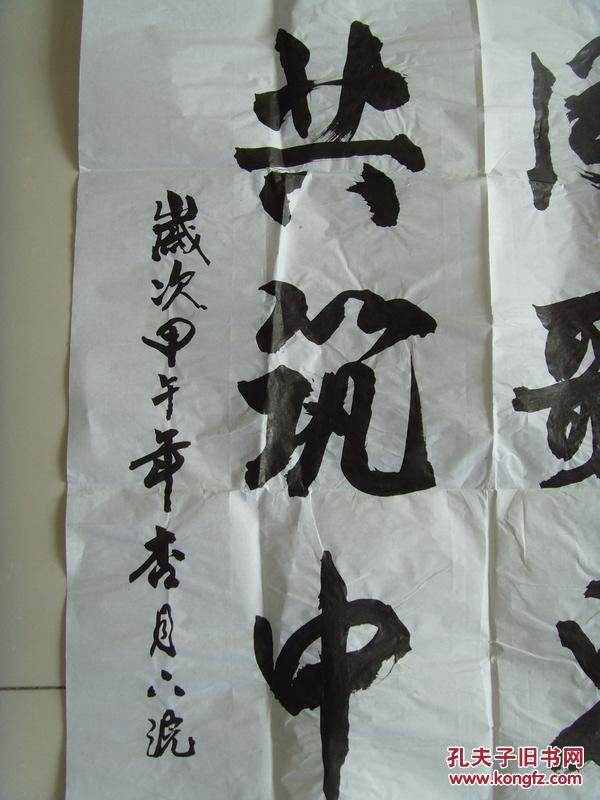 共筑中
歲次甲午年杏月下浣
孔夫子旧书网
www.kongfz.com